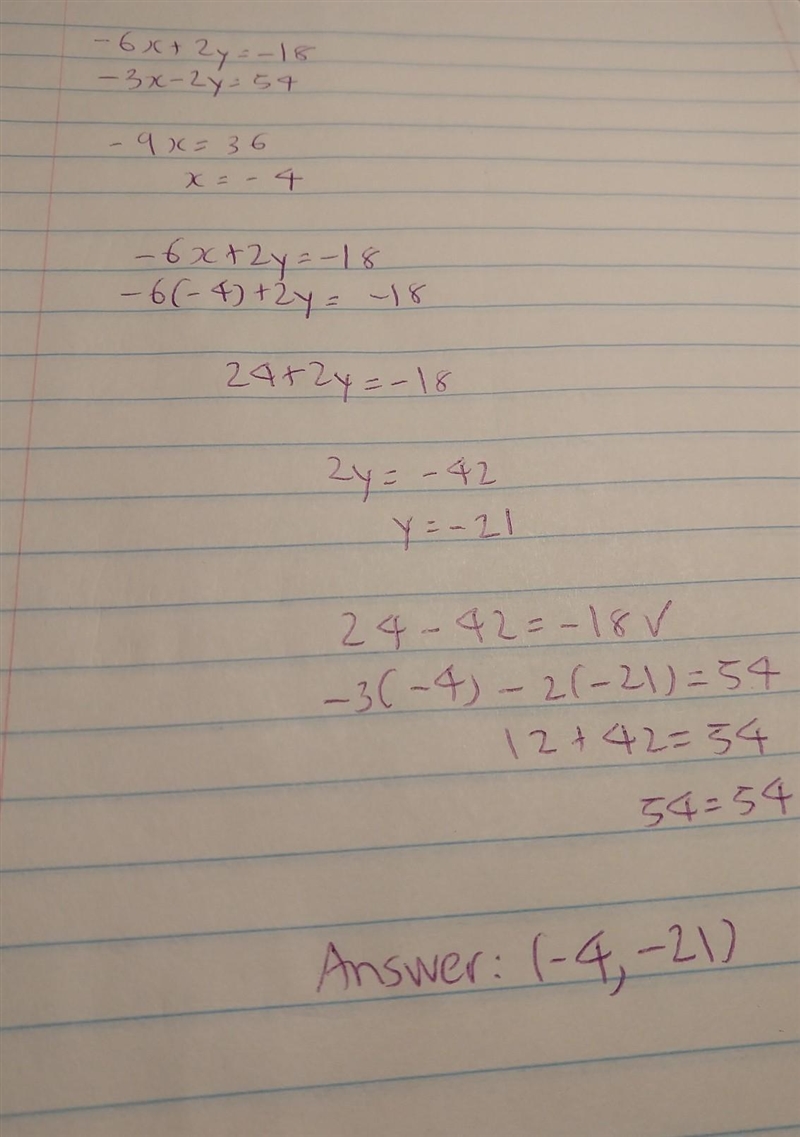 -6x+2y=-18
-3x-2y=54
-9x=36
x=-4
-6x+2y=-18
-6(-4)+2y= -18
24+2y=-18
2y=-42
y=-21
24-42=-18✓
-3(-4)-2(-21)=54
12+42=54
54=54
Answer: (-4,-21)